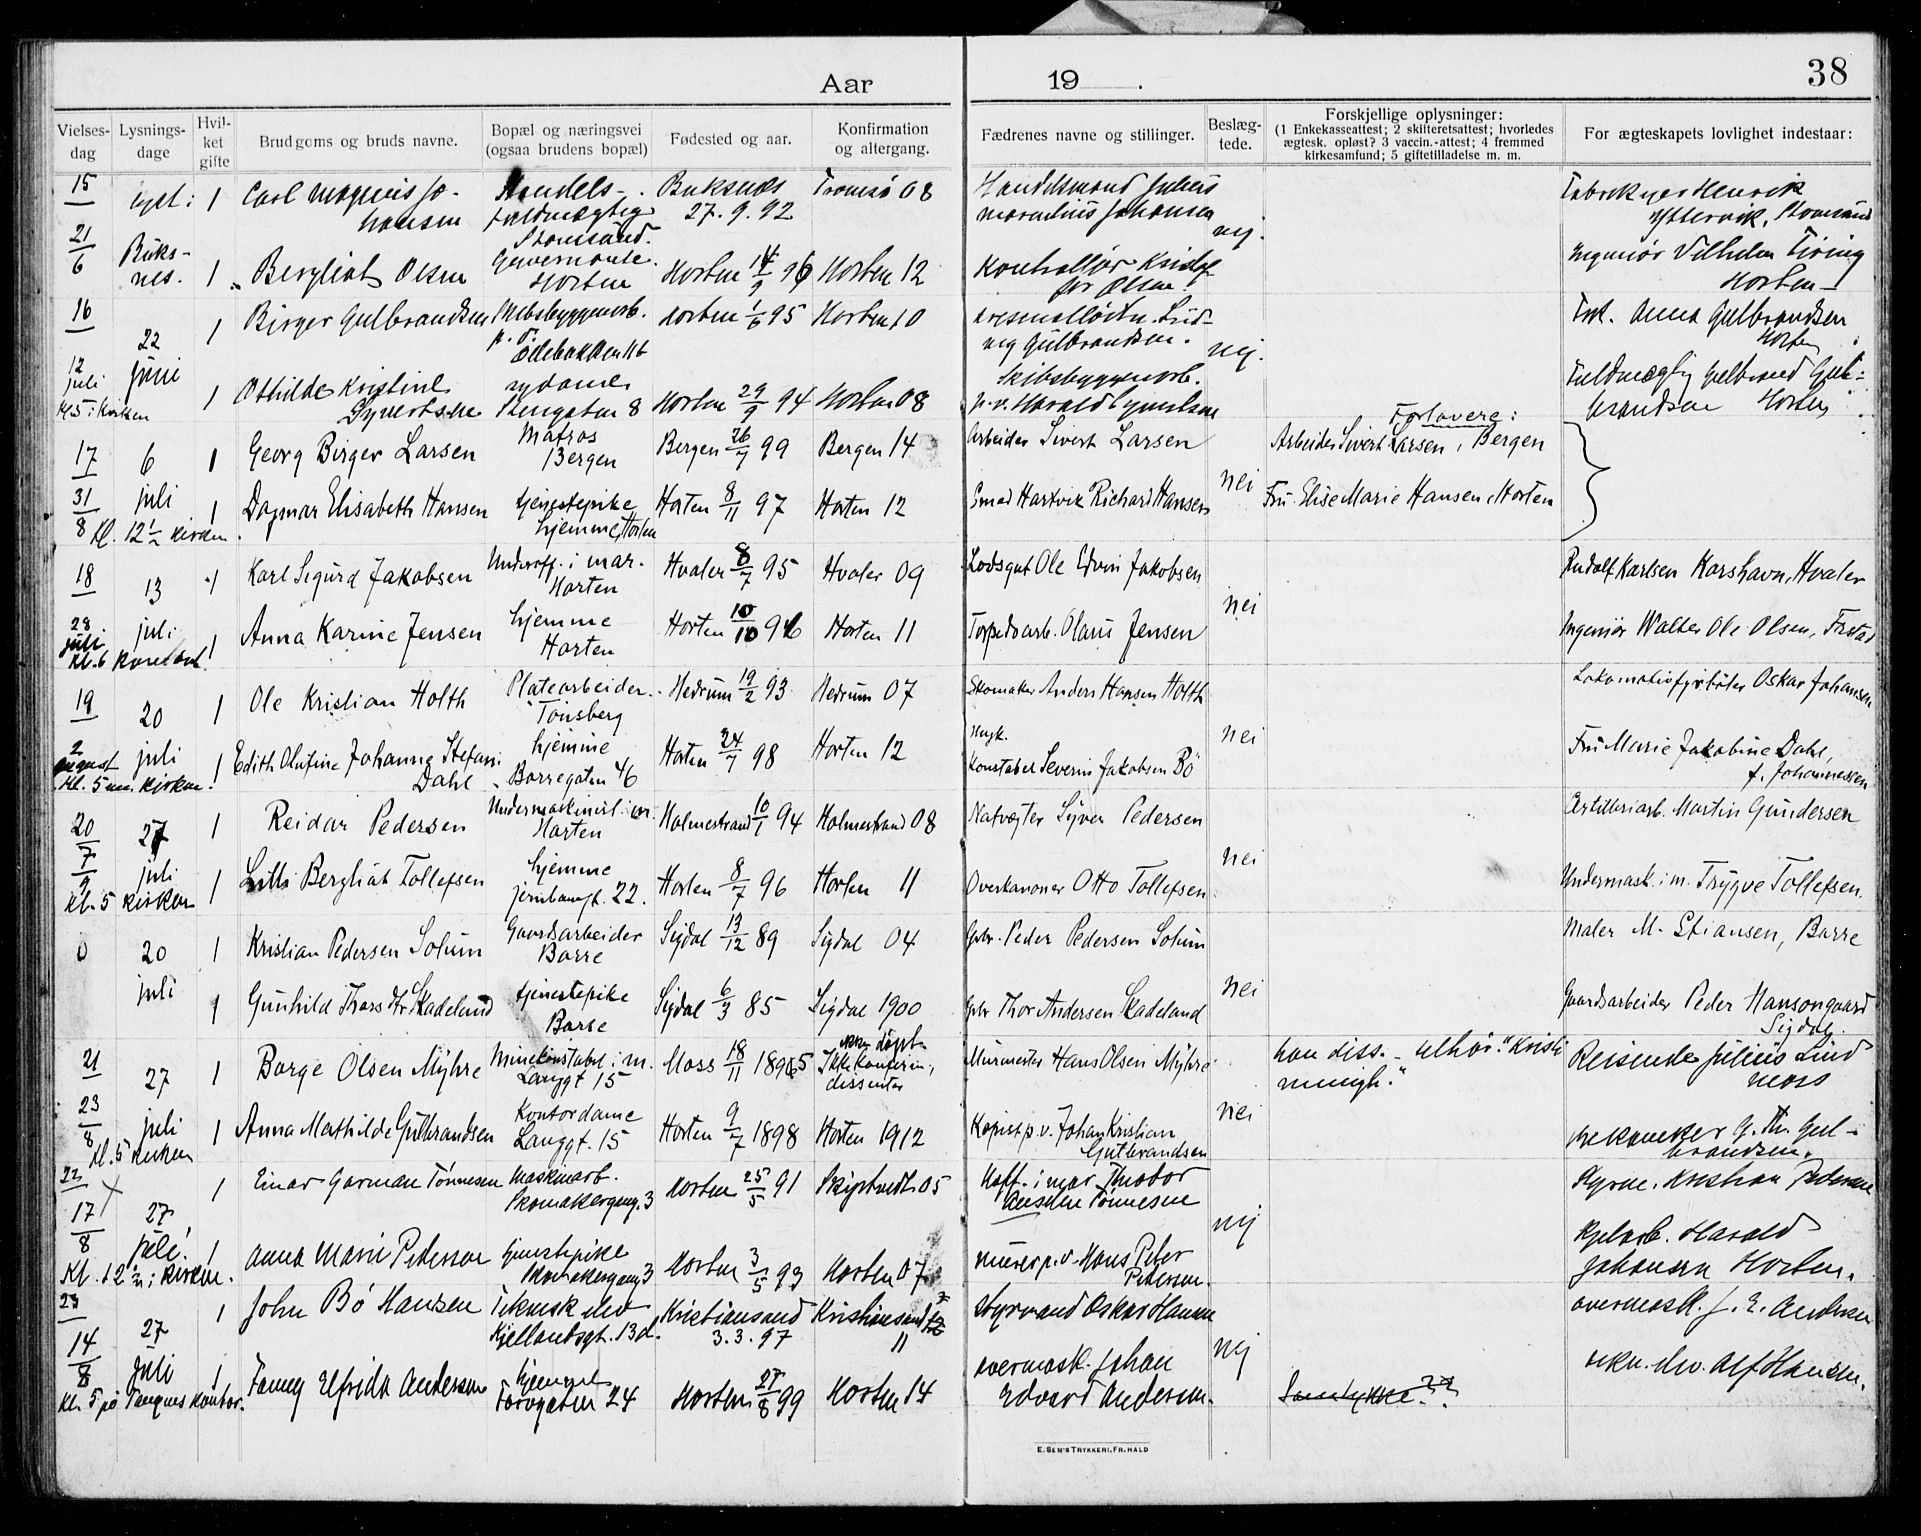 Aar 19 .
38
Vielses-dag
Lysnings-dage
Hvil-ket gifte
Brudgoms og bruds navne.
Bopæl og næringsvei (ogsaa brudens bopæl)
Fødested og aar.
Konfirmation og altergang.
Fædrenes navne og stillinger.
Beslæg-tede.
Forskjellige oplysninger:
(1 Enkekasseattest; 2 skifteretsattest; hvorledes
ægtesk. opløst? 3 vaccin.-attest; 4 fremmed
kirkesamfund; 5 giftetilladelse m. m.
For ægteskapets lovlighet indestaar:
15 lyst i 1 Carl Magnus Johansen Handels- fuldmægtig Storsund. Buksnes 27.9.92 Tromsø 08 Handelsmand Julius Johansen nej. Henrik Yttervik, Storsund
21/6 Buks-nes. 1 Bergliot Olsen Guvernante Horten Horten 96 Horten 12 Kontrollør Olsen Ingeniør Vilhelm Horten
16 22 1 Birger Gulbrandsen Skibsbyggerarb. Horten 1/6 95 Horten 10 Gulbrandsen. nej. Frk. Anna Gulbrandsen Horten
12 juli juni Kl. 5 i kirken 1 Othilde Kristine Syvertsen sydame Storgaten 8 Horten 29/9 94 Horten 08 Skibsbyggerarb. p.v. Harald Syvertsen Fuldmægtig Gulbrand Gulbrandsen Horten
17 6 1 Georg Birger Larsen Matros Bergen Bergen 26/7 99 Bergen 14 Arbeider Sivert Larsen nei Forlovere: Arbeider Sivert Larsen, Bergen
31/8 juli Kl. 12 1/2 kirken. 1 Dagmar Elisabeth Hansen tjenestepike hjemme, Horten Horten 8/11 97 Horten 12 Smed Hartvik Richard Hansen Fru Elise Marie Hansen Horten
18 13 1 Karl Sigurd Jakobsen Underoff. i mar. Horten Hvaler 8/7 95 Hvaler 09 Lodsgut Ole Edvin Jakobsen nei Rudolf Karlsen Korshavn, Hvaler
28 juli juli Kl. 6 1 Anna Karine Jensen hjemme Horten Horten 10/10 96 Horten 11 Torpedoarb. Olaus Jensen Ingeniør Walter Ole Olsen, Frstad
19 20 1 Ole Kristian Holth Platearbeider Tønsberg Hedrum 19/2 93 Hedrum 07 Skomaker Anders Hansen Holth nei Lokomotivfyrbøter Oskar Johansen
2 august juli Kl. 5 em. kirken. 1 Edith Olufine Johanna Stefani Dahl hjemme Borregaten 46 Horten 24/7 98 Horten 12 Konstabel Severin Jakobsen Bö Fru Marie Jakobine Dahl, f. Johannessen
20 27 1 Reidar Pedersen Undermaskinist i m. Horten Holmestrand 10/1 94 Holmestrand 08 Natvægter Syver Pedersen nei Artilleriarb. Martin Gundersen
7/9 juli Kl. 5 kirken 1 Lilli Bergliot Tollefsen hjemme Jernbangt. 22. Horten 8/7 96 Horten 11 Overkanoner Otto Tollefsen Undermask. i m. Trygve Tollefsen.
0 20 1 Kristian Pedersen Solum Gaardsarbeider Borre Sigdal 13/12 89 Sigdal 04 Gbr. Peder Pedersen Solum nei Maler M. Stiansen, Borre
juli 1 Gunhild Thorsdtr Skadeland tjenestepike Borre Sigdal 6/3 85 Sigdal 1900 Gbr Thor Andersen Skadeland Gaardsarbeider Peder Hansongaard Sigdal.
21 27 1 Borge Olsen Myhre Minekonstabel i m. Langgt 15 Moss 18/11 1895 ikke døpt Ikke konfirm., dissenter Murmester Hans Olsen Myhre nei han diss. - tilhør. "Kristi menigh." Reisende Julius Lind Moss
23/8 juli Kl. 5 kirken 1 Anna Mathilde Gulbrandsen Kontordame Langgt. 15 Horten 9/7 1898 Horten 1912 Kopist p.v. Johan Kristian Gulbrandsen G. Th. Gulbrandsen.
22 27 1 Einar Garman Tønnesen Maskinarb. Skomakergang. 3 Horten 25/5 91 Skjptvedt 05 Uoff. i mar. Theodor Anselm Tønnesen nej Styrm. Kristian Pedersen
17/8 juli. Kl. 12 1/2 i kirken. 1 Anna Marie Pederson tjenestepike Skomakergang 3 Horten 3/5 93 Horten 07 murer p.v. Hans Peter Pedersen. Kjelarb. Harald Johansen Horten.
23 27 1 John Bö Hansen Teknisk elev Kjellandsgt. 13d. Kristiansand 3.3.97 Kristiansand 11 Styrmand Oskar Hansen nej overmask. J. E. Andersen
14/8 juli Kl. 5 på Tangens kontor. 1 Fanny Elfrida Andersen hjemme Torvgaten 24 Horten 27/8 99 Horten 14 overmask. Johan Edvard Andersen. Samtykke?? tekn. elev. Alf Hansen.
E. SEM'S TRYKKERI, FR.HALD